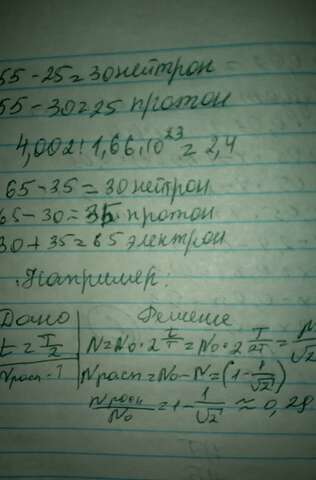 55-25=30 нейтрон
55-30=25 протон
4,002:1,66·10^23=2,4
65-35=30 нейтрон
65-30=35 протон
30+35=65 электрон
Например:
Дано
Решение
t=T/2
N=N₀·2^(t/T)=N₀·2^(T/2T)=N/√2
Nрасп-?
Nрасп=N₀-N=(1-1/√2)
Nрасп/N₀=1-1/√2≈0,28